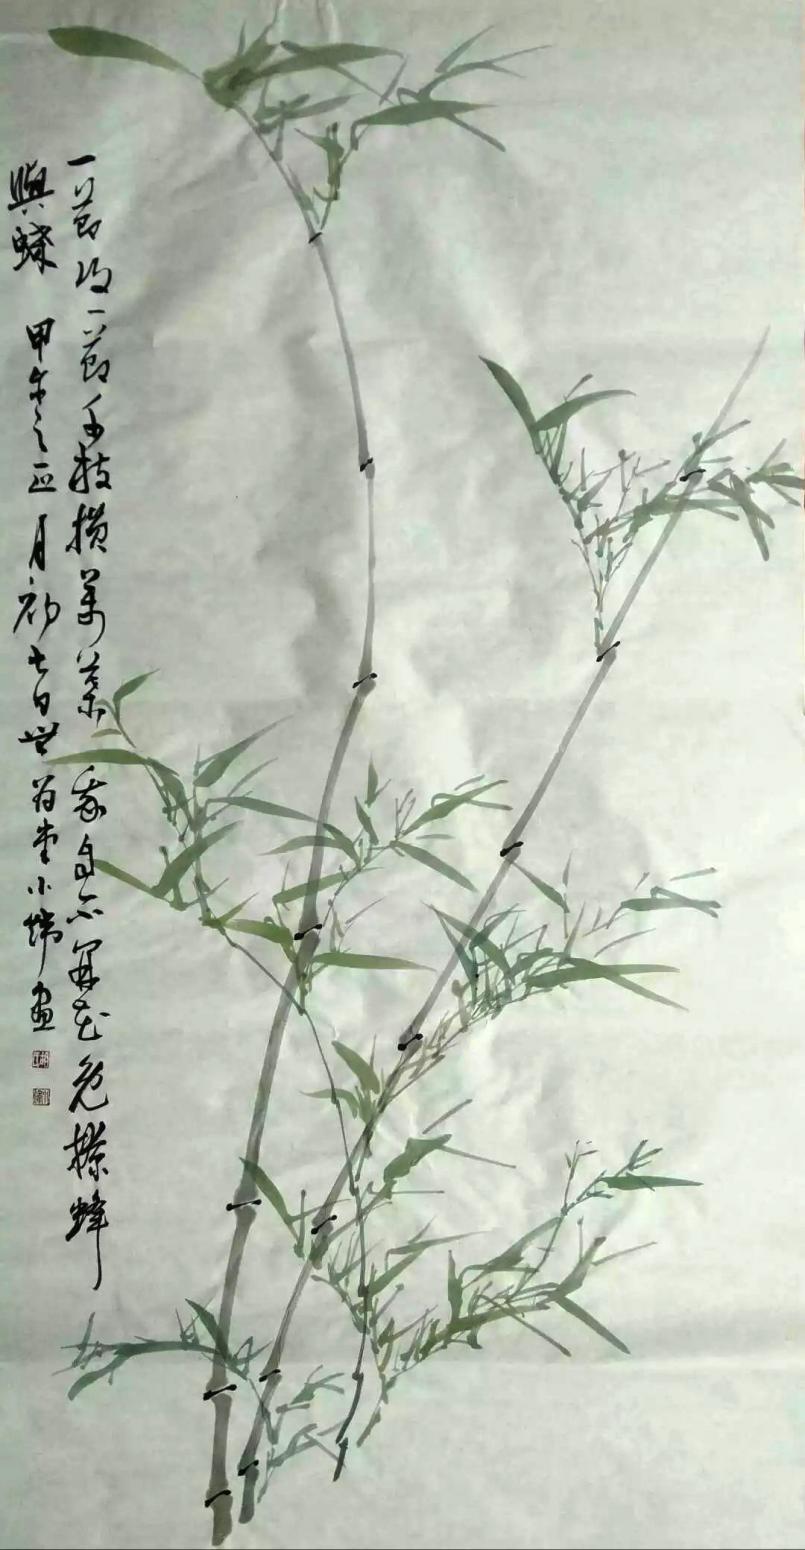 一節復一節千枝攢萬葉我自不開花免撩蜂
與蝶 甲午之正月初七日 為堂小 畫